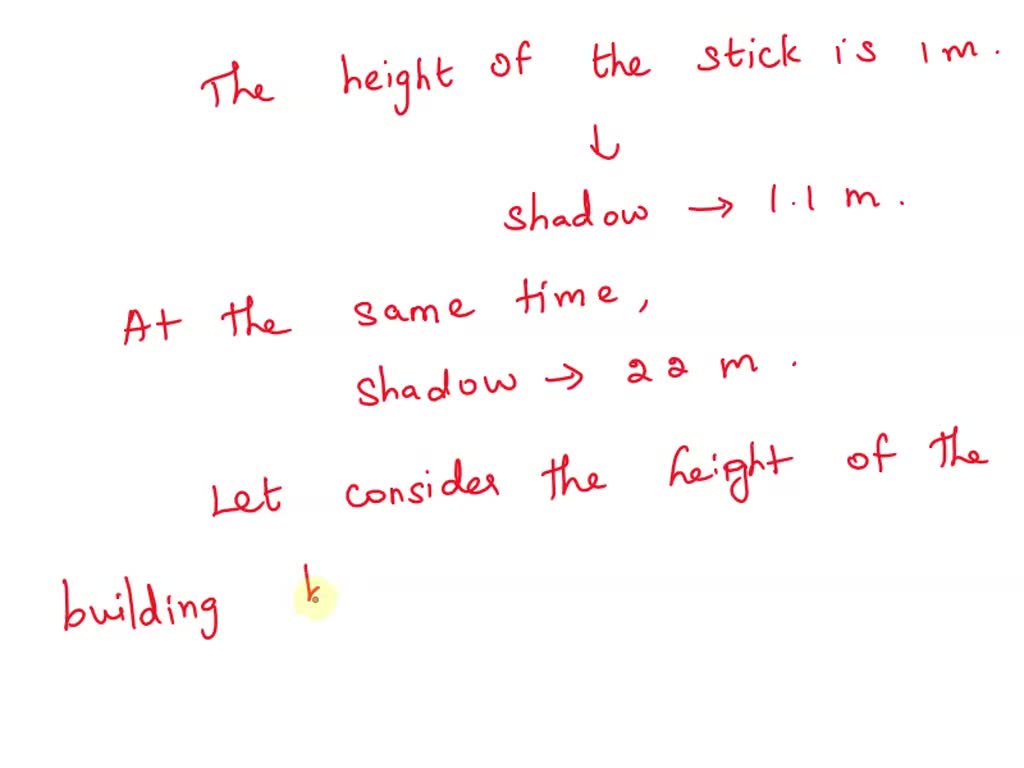 The height of the stick is 1m.
↓
shadow → 1.1 m.
At the same time,
shadow → 22 m.
Let consider the height of the
building